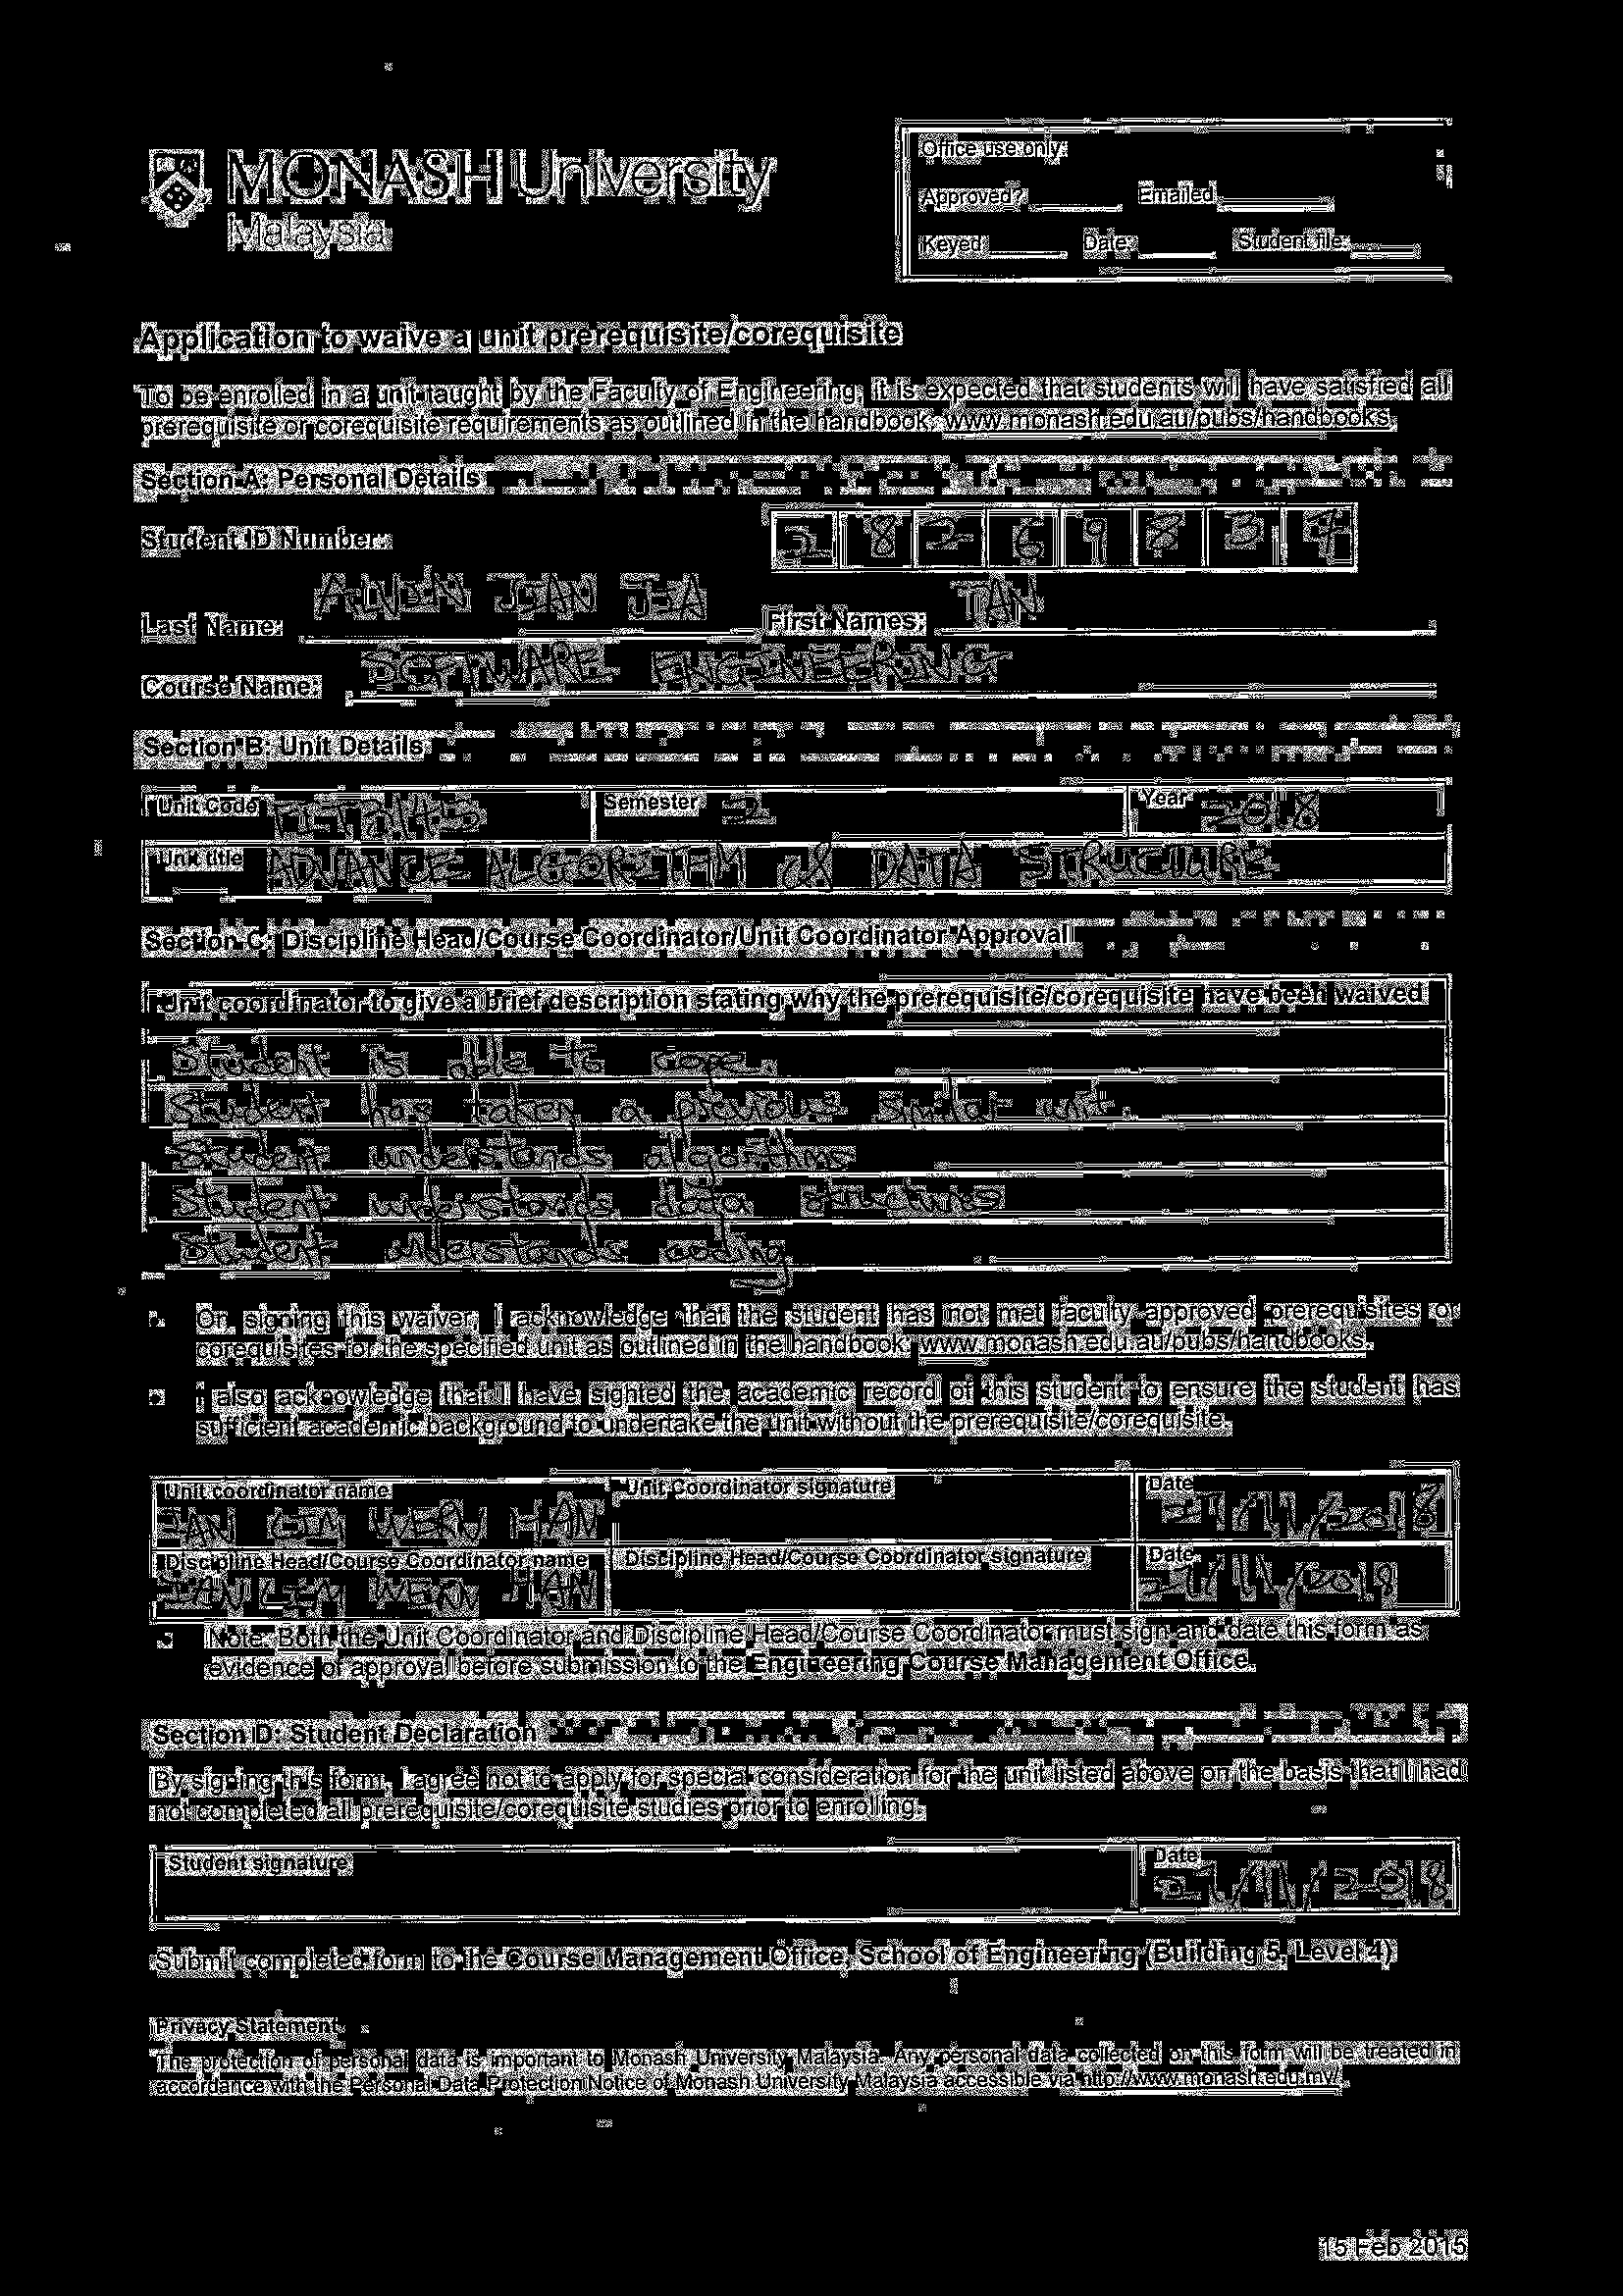 MONASH University
Malaysia
Office use only
Approved? Emailed
Keyed Date: Student file:
Application to waive a unit prerequisite/corequisite
To be enrolled in a unit taught by the Faculty of Engineering, it is expected that students will have satisfied all
prerequisite or corequisite requirements as outlined in the handbook: www.monash.edu.au/pubs/handbooks.
Section A: Personal Details
Student ID Number:
Last Name: ALVIN JIAN JIA First Names: TAN
Course Name: SOFTWARE ENGINEERING
Section B: Unit Details
Unit Code Semester 2 Year 2018
Unit title ADVANCE ALGORITHM & DATA STRUCTURE
Section C: Discipline Head/Course Coordinator/Unit Coordinator Approval
Unit coordinator to give a brief description stating why the prerequisite/corequisite have been waived
Student is able to cope.
Student has taken a previous similar unit.
Student understands algorithms
Student understands data structures
Student understands coding
• On signing this waiver, I acknowledge that the student has not met faculty approved prerequisites or
corequisites for the specified unit as outlined in the handbook: www.monash.edu.au/pubs/handbooks.
• I also acknowledge that I have sighted the academic record of this student to ensure the student has
sufficient academic background to undertake the unit without the prerequisite/corequisite.
Unit coordinator name Unit Coordinator signature Date
IAN LIM WERN HAN 21/11/2018
Discipline Head/Course Coordinator name Discipline Head/Course Coordinator signature Date
IAN LIM WERN HAN 21/11/2018
• Note: Both the Unit Coordinator and Discipline Head/Course Coordinator must sign and date this form as
evidence of approval before submission to the Engineering Course Management Office.
Section D: Student Declaration
By signing this form, I agree not to apply for special consideration for the unit listed above on the basis that I had
not completed all prerequisite/corequisite studies prior to enrolling.
Student signature Date
21/11/2018
Submit completed form to the Course Management Office, School of Engineering (Building 5, Level 4)
Privacy Statement
The protection of personal data is important to Monash University Malaysia. Any personal data collected on this form will be treated in
accordance with the Personal Data Protection Notice of Monash University Malaysia accessible via http://www.monash.edu.my/.
15 Feb 2015